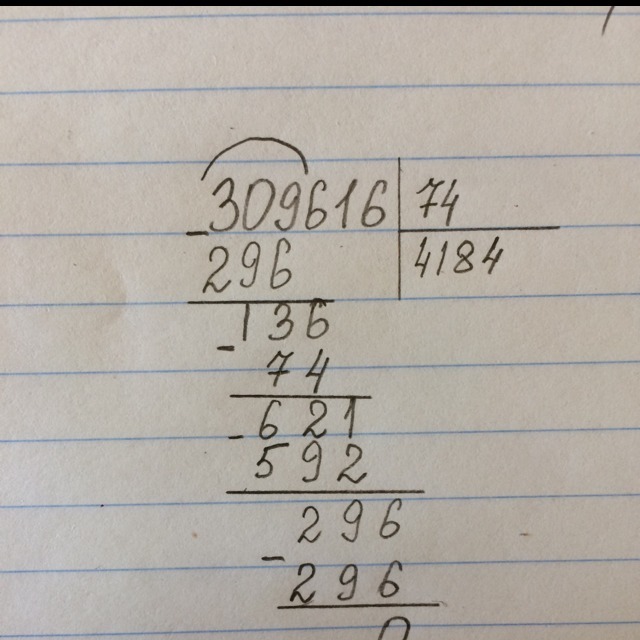 309616 74
296 4184
136
74
621
592
296
296
0